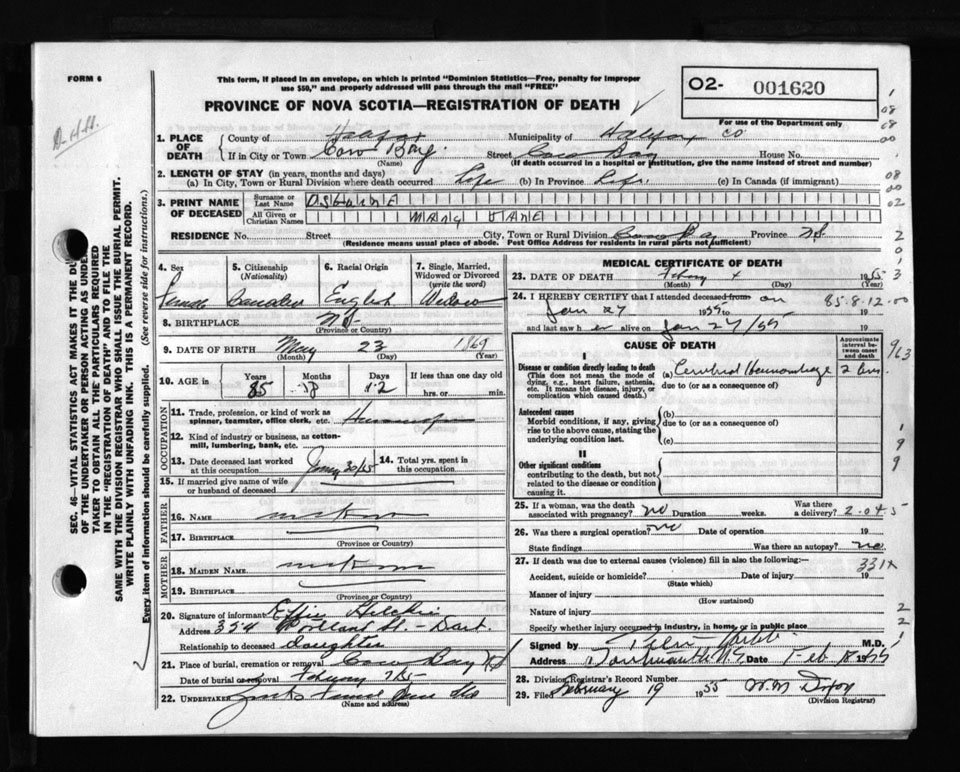 FORM 6
This form, if placed in an envelope, on which is printed "Dominion Statistics—Free, penalty for improper
use $50," and properly addressed will pass through the mail "FREE"
PROVINCE OF NOVA SCOTIA—REGISTRATION OF DEATH
O2- 001620
For use of the Department only
D.H.H.
1. PLACE OF DEATH County of Halifax Municipality of Halifax Co
If in City or Town Cow Bay. Street Cow Bay House No.
(Name) (If death occurred in a hospital or institution, give the name instead of street and number)
2. LENGTH OF STAY (in years, months and days)
(a) In City, Town or Rural Division where death occurred Life (b) In Province Life. (c) In Canada (if immigrant)
3. PRINT NAME OF DECEASED Surname or Last Name OSBORNE
All Given or Christian Names MARY JANE
RESIDENCE No. Street City, Town or Rural Division Cow Bay Province NS
(Residence means usual place of abode. Post Office Address for residents in rural parts not sufficient)
4. Sex Female
5. Citizenship (Nationality) Canadian
6. Racial Origin English
7. Single, Married, Widowed or Divorced (write the word) Widow
8. BIRTHPLACE N.S.
(Province or Country)
9. DATE OF BIRTH May 23 1869
(Month) (Day) (Year)
10. AGE in Years Months Days If less than one day old
85 8 12 hrs. or min.
OCCUPATION
11. Trade, profession, or kind of work as spinner, teamster, office clerk, etc.
12. Kind of industry or business, as cotton-mill, lumbering, bank, etc.
13. Date deceased last worked at this occupation
14. Total yrs. spent in this occupation
15. If married give name of wife or husband of deceased
FATHER
16. NAME
17. BIRTHPLACE
(Province or Country)
MOTHER
18. MAIDEN NAME
19. BIRTHPLACE
(Province or Country)
20. Signature of informant Effie
Address 354 Portland St. - Dart.
Relationship to deceased Daughter
21. Place of burial, cremation or removal Cow Bay NS
Date of burial or removal
22. UNDERTAKER
(Name and address)
MEDICAL CERTIFICATE OF DEATH
23. DATE OF DEATH 1955
(Month) (Day)
24. I HEREBY CERTIFY that I attended deceased from on 85.8.12.00
Jan 27 1955 to 19
and last saw her alive on Jan 27/55 19
CAUSE OF DEATH
Approximate interval between onset and death
I
Disease or condition directly leading to death
(This does not mean the mode of dying, e.g., heart failure, asthenia, etc. It means the disease, injury, or complication which caused death.)
(a) Cerebral Hemorrhage 2
due to (or as a consequence of)
Antecedent causes
Morbid conditions, if any, giving rise to the above cause, stating the underlying condition last.
(b)
due to (or as a consequence of)
(c)
II
Other significant conditions
contributing to the death, but not related to the disease or condition causing it.
25. If a woman, was the death associated with pregnancy? no Duration weeks. Was there a delivery? 2-045
26. Was there a surgical operation? no Date of operation 19
State findings Was there an autopsy? no
27. If death was due to external causes (violence) fill in also the following:— 331x
Accident, suicide or homicide? Date of injury 19
(State which)
Manner of injury
(How sustained)
Nature of injury
Specify whether injury occurred in industry, in home, or in public place
Signed by M.D.
Address Dartmouth N.S. Date Feb 1955
28. Division Registrar's Record Number
29. Filed February 19 1955 W.M Dixon
(Division Registrar)
SEC. 46—VITAL STATISTICS ACT MAKES IT THE DU
OF THE UNDERTAKER OR PERSON ACTING AS UNDER
TAKER TO OBTAIN ALL THE PARTICULARS REQUIRED
IN THE "REGISTRATION OF DEATH" AND TO FILE THE
SAME WITH THE DIVISION REGISTRAR WHO SHALL ISSUE THE BURIAL PERMIT.
WRITE PLAINLY WITH UNFADING INK. THIS IS A PERMANENT RECORD.
Every item of information should be carefully supplied. (See reverse side for instructions.)